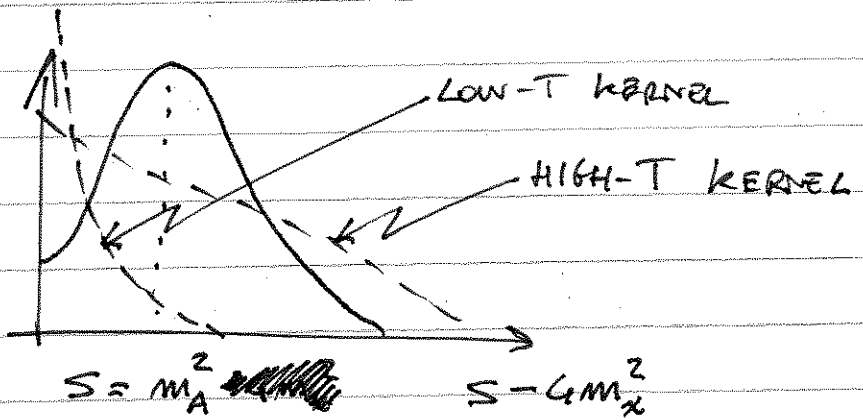 LOW-T KERNEL
HIGH-T KERNEL
S = m_A^2
S - 4m_x^2